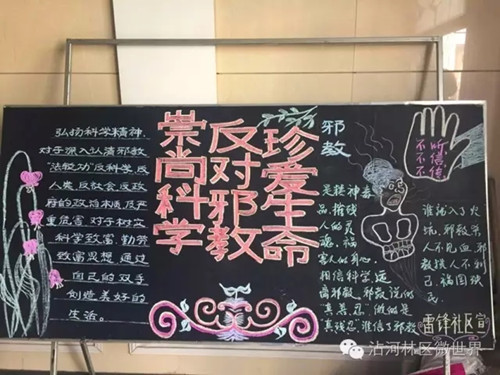 弘扬科学精神,
对于深入认清邪教
"法轮功"反科学,反
人类,反社会,反政
府的政治本质,及严
重危害,对于树立
科学致富,勤劳
致富思想,通过
自己的双手
创造美好的
生活。
珍爱生命
反对邪教
崇尚科学
邪教
是精神毒
品,摧残
人的灵
魂,祸
害人的身心。
相信科学远
离邪教,邪教说的
真善忍,做的是
真残忍,谁信了邪教
谁就入了火
坑,邪教杀
人不见血,邪
教损人不利
己,祸国殃
民。
不听
不信
不传
雷锋社区宣
沾河林区微世界